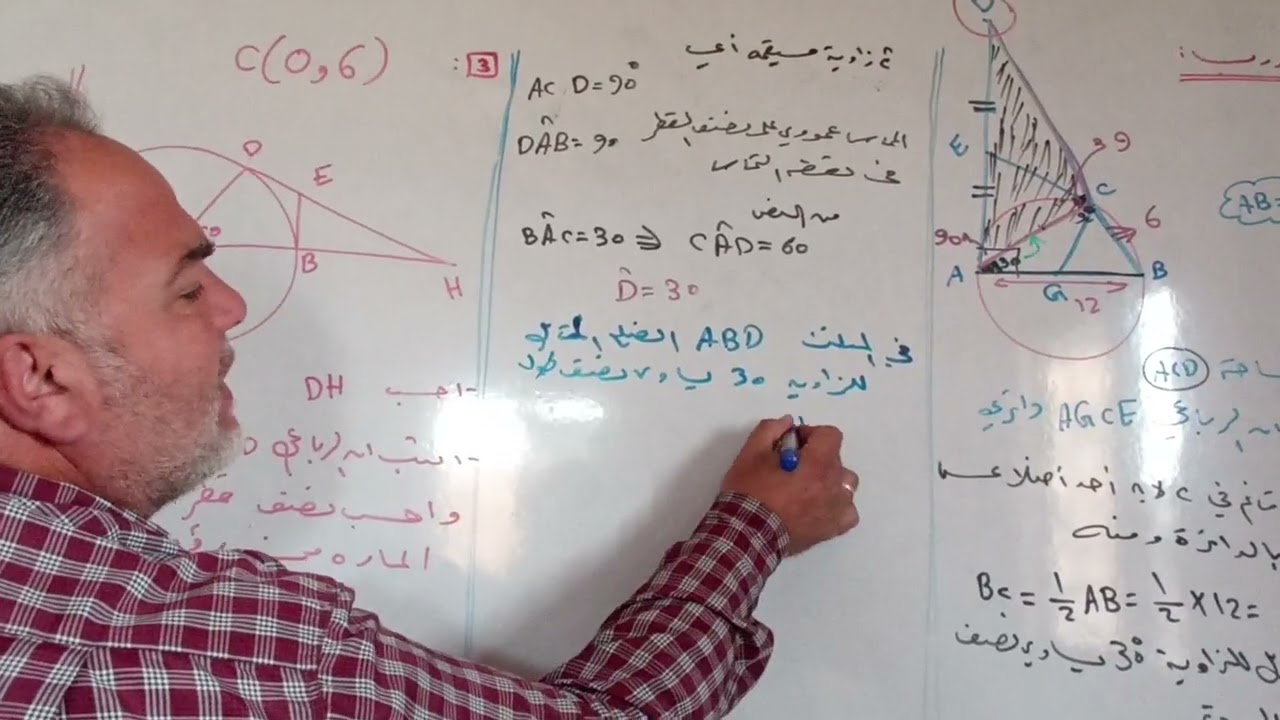 C(0,6)
3 :
O
E
B
H
احسب DH
اثبت ان الرباعي
واحسب نصف قطر
الماره من
زاوية مستقيمة أي
AC D = 90°
DÂB = 90 المماس عمودي على نصف القطر
في نقطة التماس
من الفرض
BÂC = 30 ⇒ CÂD = 60
D̂ = 30
في المثلث ABD الضلع المقابل
للزاوية 30 يساوي نصف طول
E
9
C
6
90
30
A
G
B
12
AB =
ACD
ان الرباعي AGCE دائري
قائم في C لان احد اضلاعه
بالدائرة ومنه
BC = ½ AB = ½ × 12 =
للزاوية 30° يساوي نصف